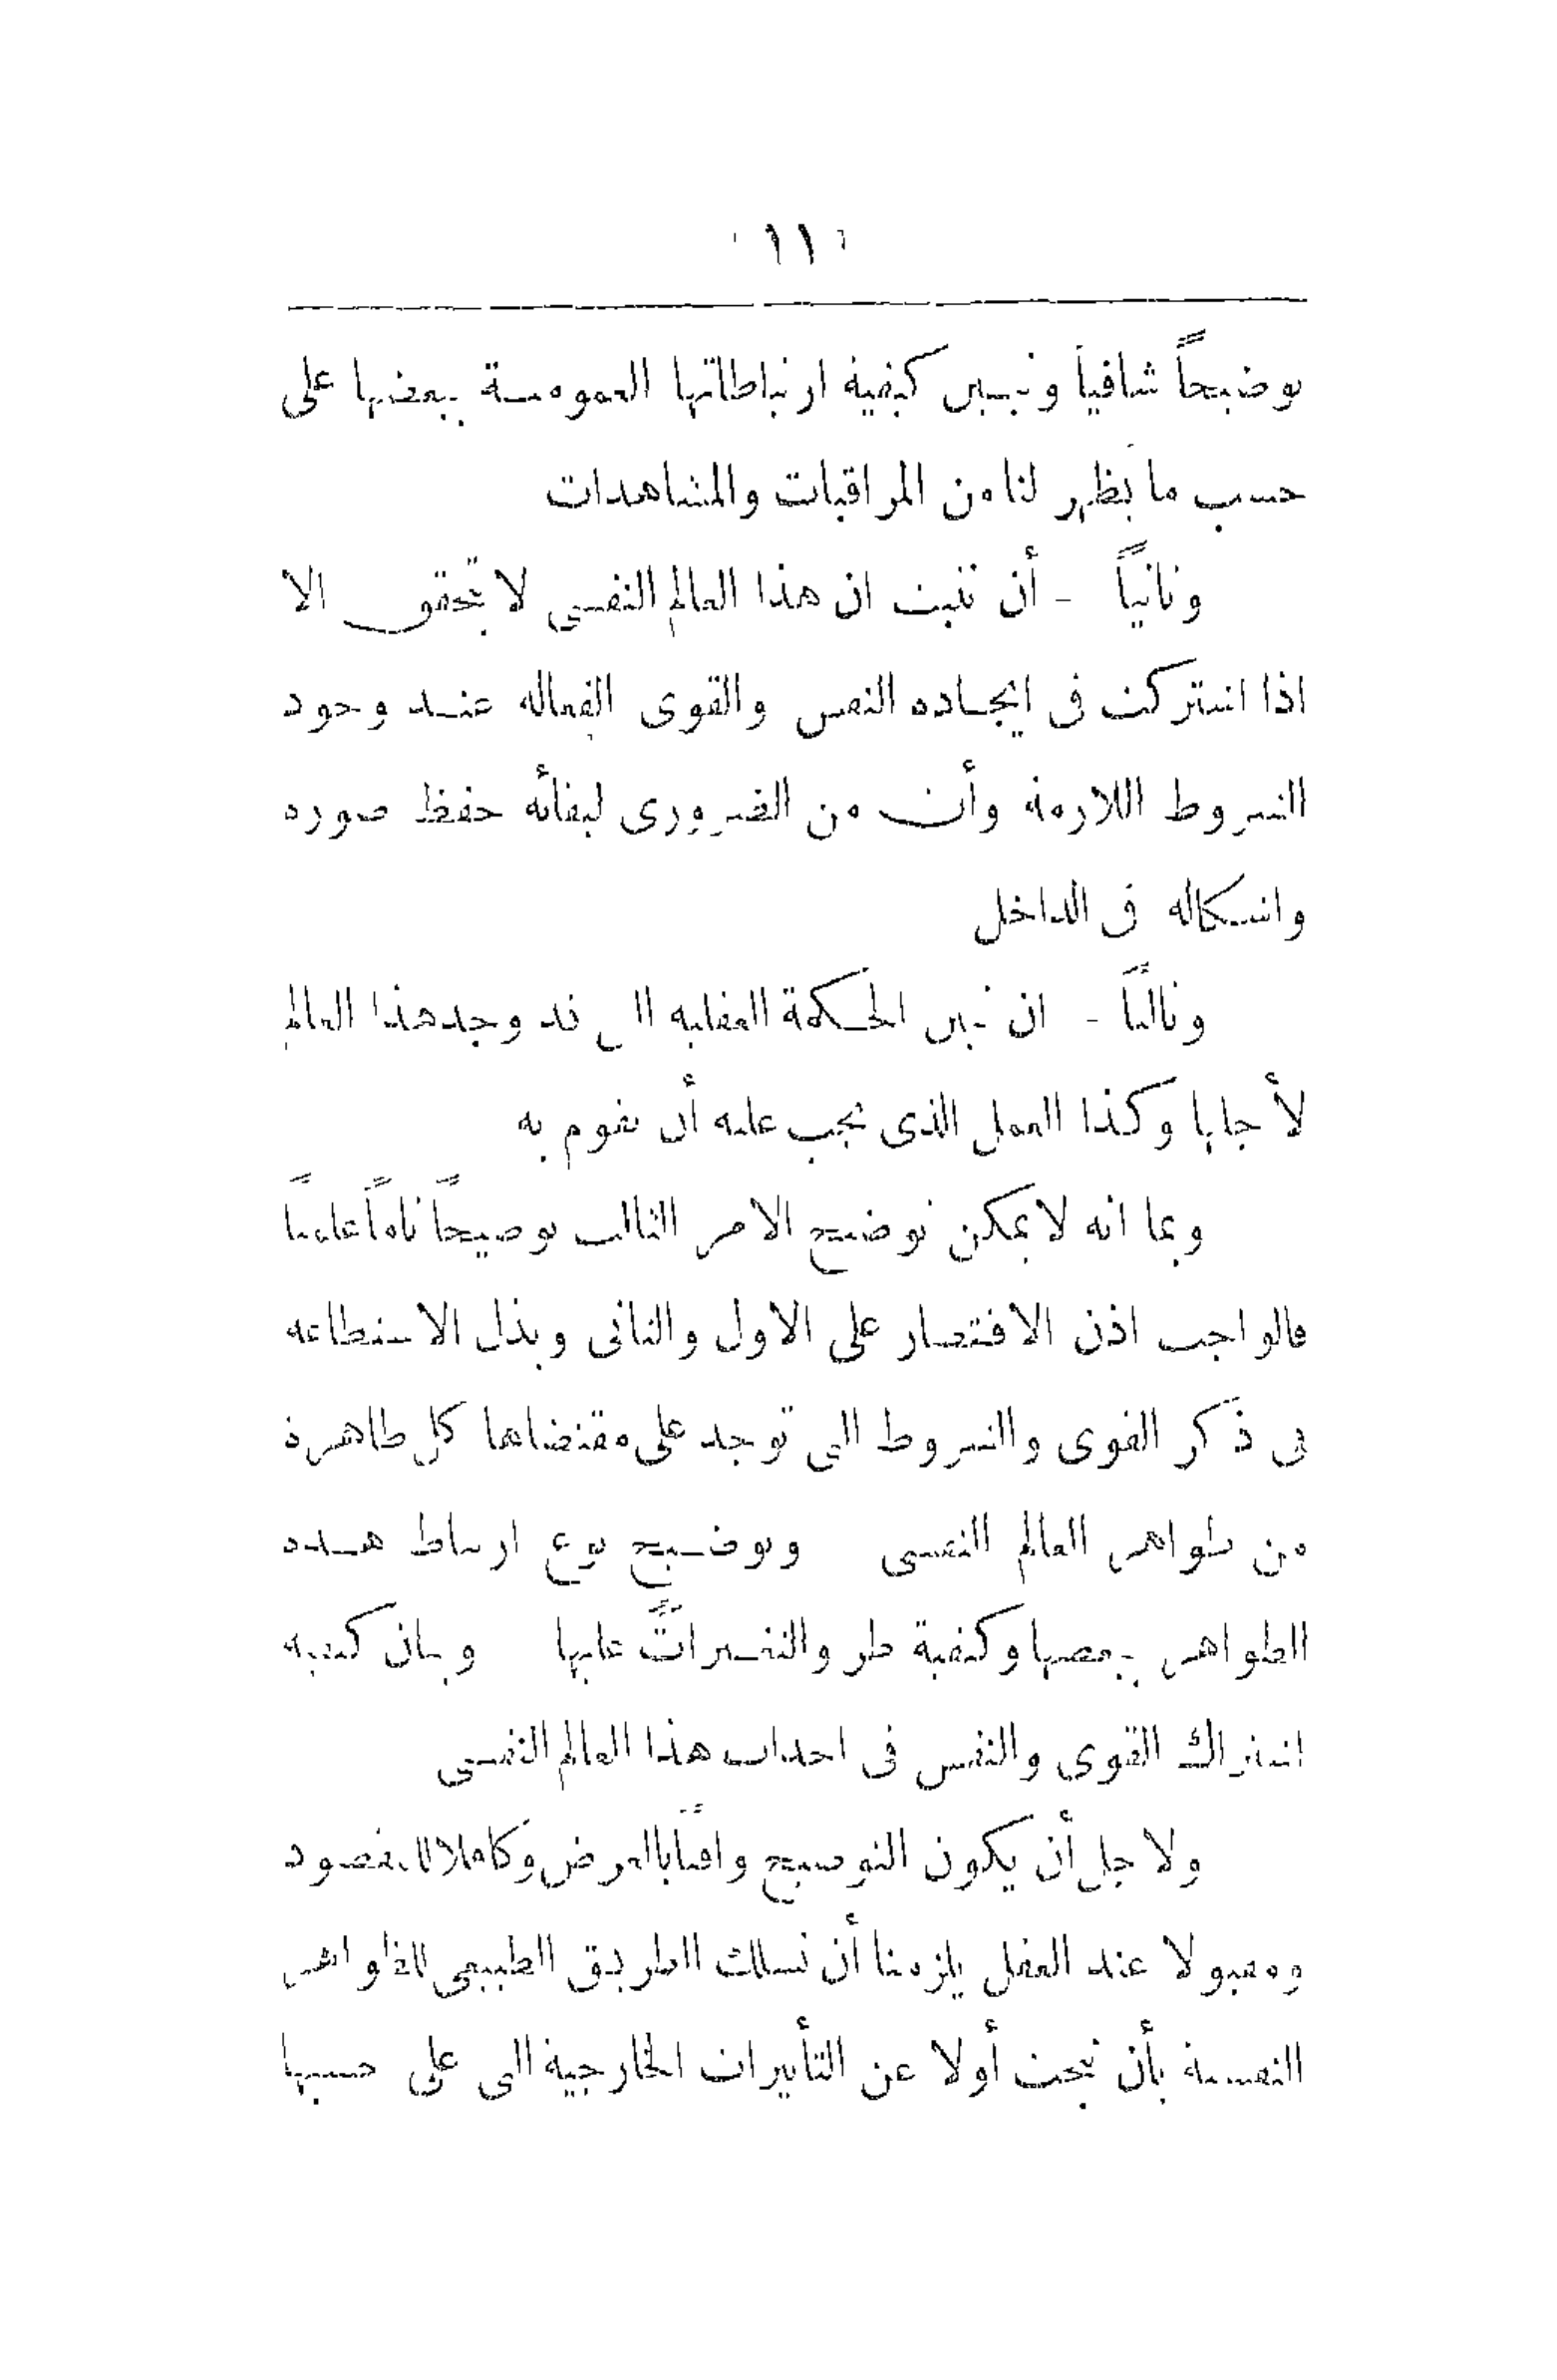 ( ١١ )
توضيحاً شافياً ونبين كيفية ارتباطاتها العمومية ببعضها على
حسب ما يظهر لنا من المراقبات والمشاهدات
وثانياً - أن نثبت ان هذا العالم النفسى لا يتحقق الا
اذا اشتركت فى ايجاده النفس والقوى الفعالة عند وجود
الشروط اللازمة وأن من الضرورى لبقائه حفظ صوره
واشكاله فى الداخل
وثالثاً - ان نبين الحكمة العقلية التى قد وجد هذا العالم
لأجلها وكذا العمل الذى يجب عليه أن يقوم به
وبما انه لا يمكن توضيح الامر الثالث توضيحاً تاماً علمياً
فالواجب اذن الاقتصار على الاول والثانى وبذل الاستطاعة
فى ذكر القوى والشروط التى توجد على مقتضاها كل ظاهرة
من ظواهر العالم النفسى وتوضيح نوع ارتباط هذه
الظواهر ببعضها وكيفية طروالتغيرات عليها وبيان كيفية
اشتراك القوى والنفس فى احداث هذا العالم النفسى
ولاجل أن يكون التوضيح وافياً بالغرض وكاملا للمقصود
ومقبولا عند العقل يلزمنا أن نسلك الطريق الطبيعى للظواهر
النفسية بأن نبحث أولا عن التأثيرات الخارجية التى على حسبها